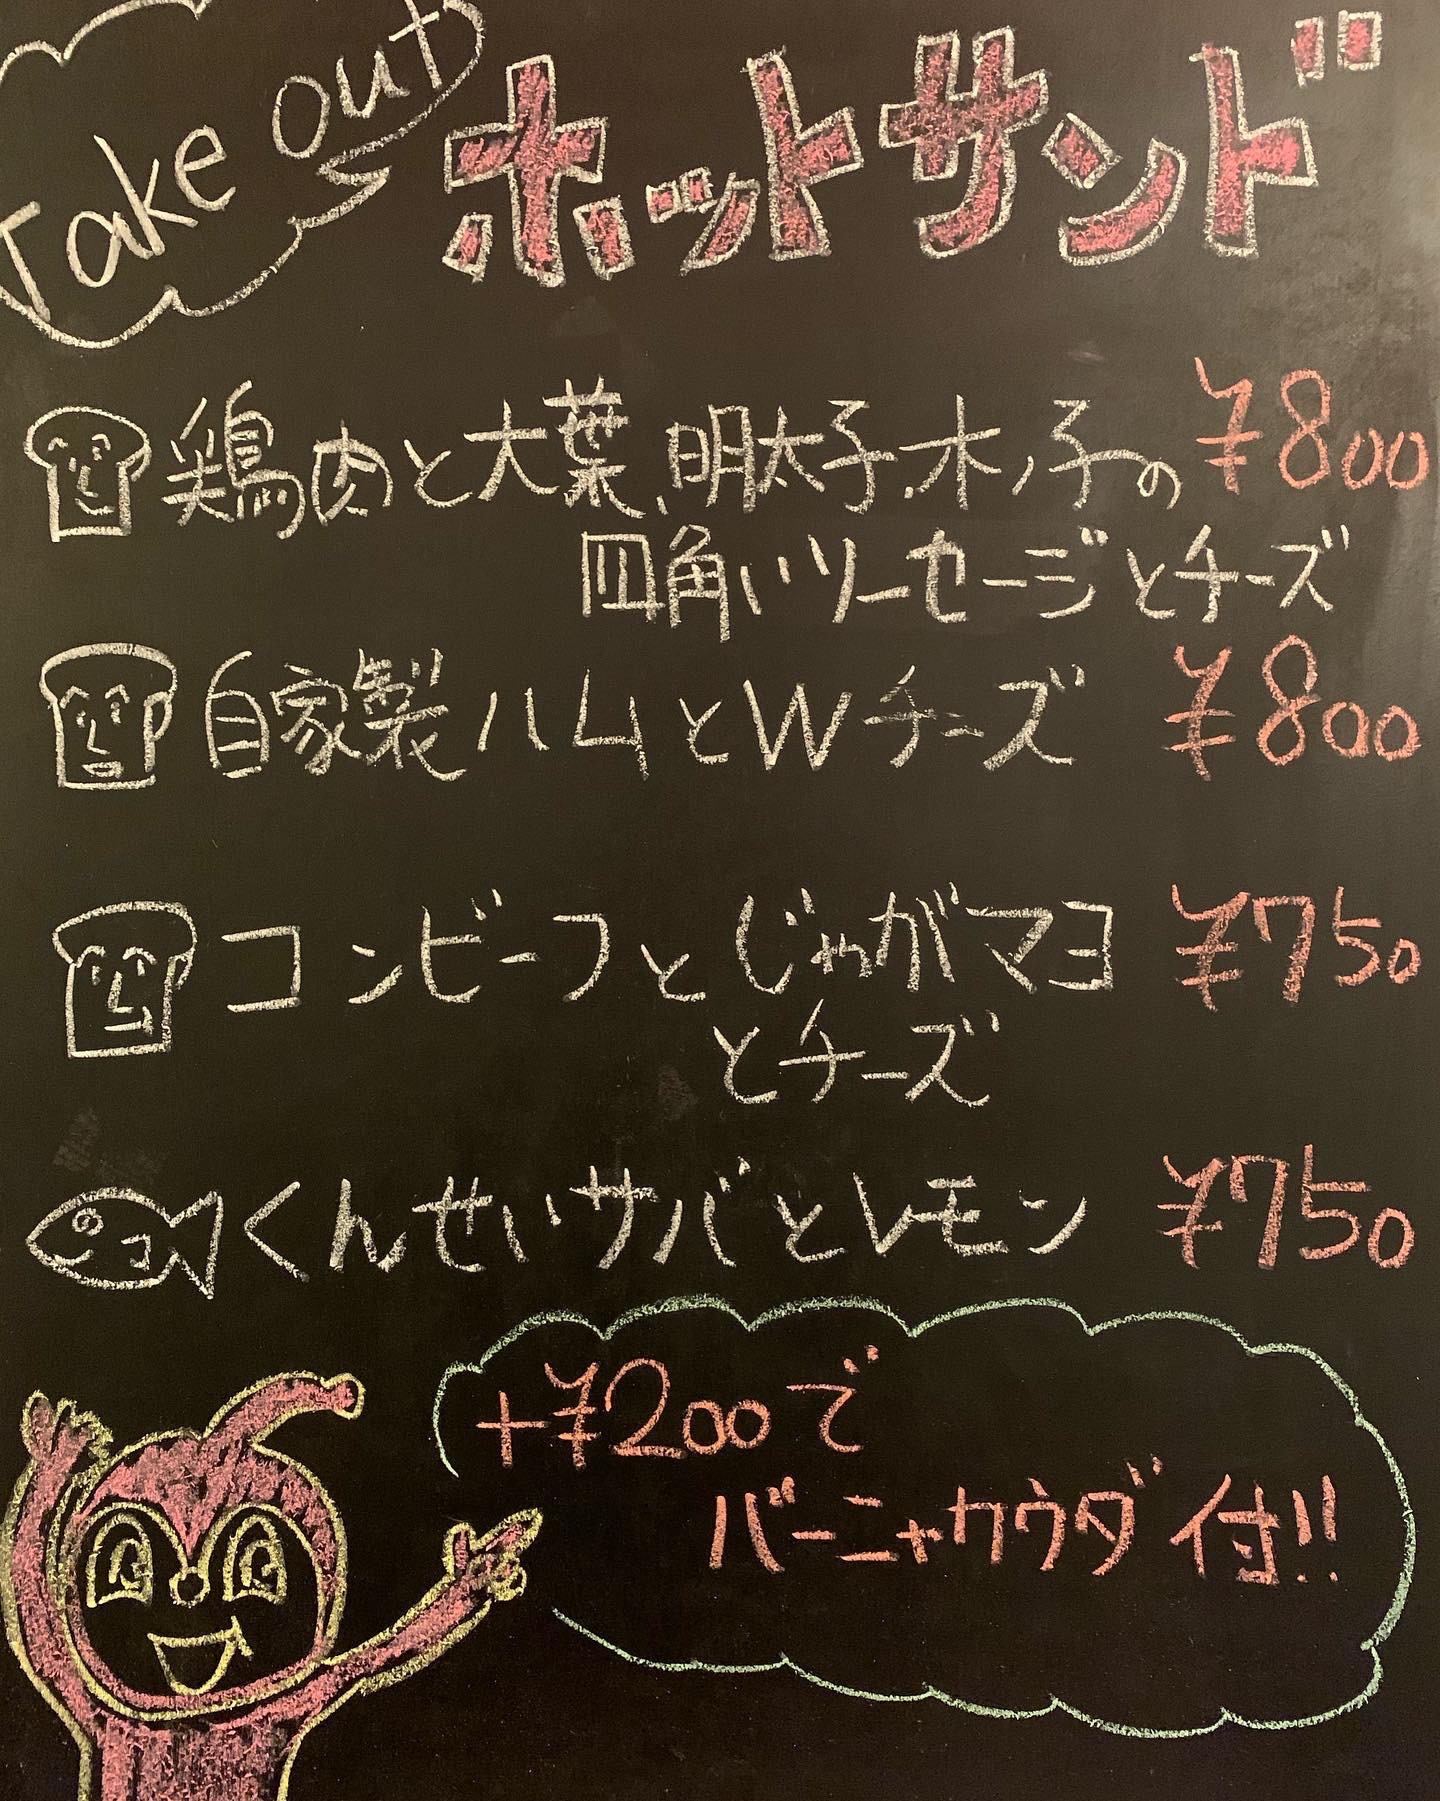 Take out
ホットサンド
鶏肉と大葉、明太子、木ノ子の ¥800
四角いソーセージとチーズ
自家製ハムとWチーズ ¥800
コンビーフとじゃがマヨ ¥750
とチーズ
くんせいサバとレモン ¥750
+¥200で
バーニャカウダ付!!